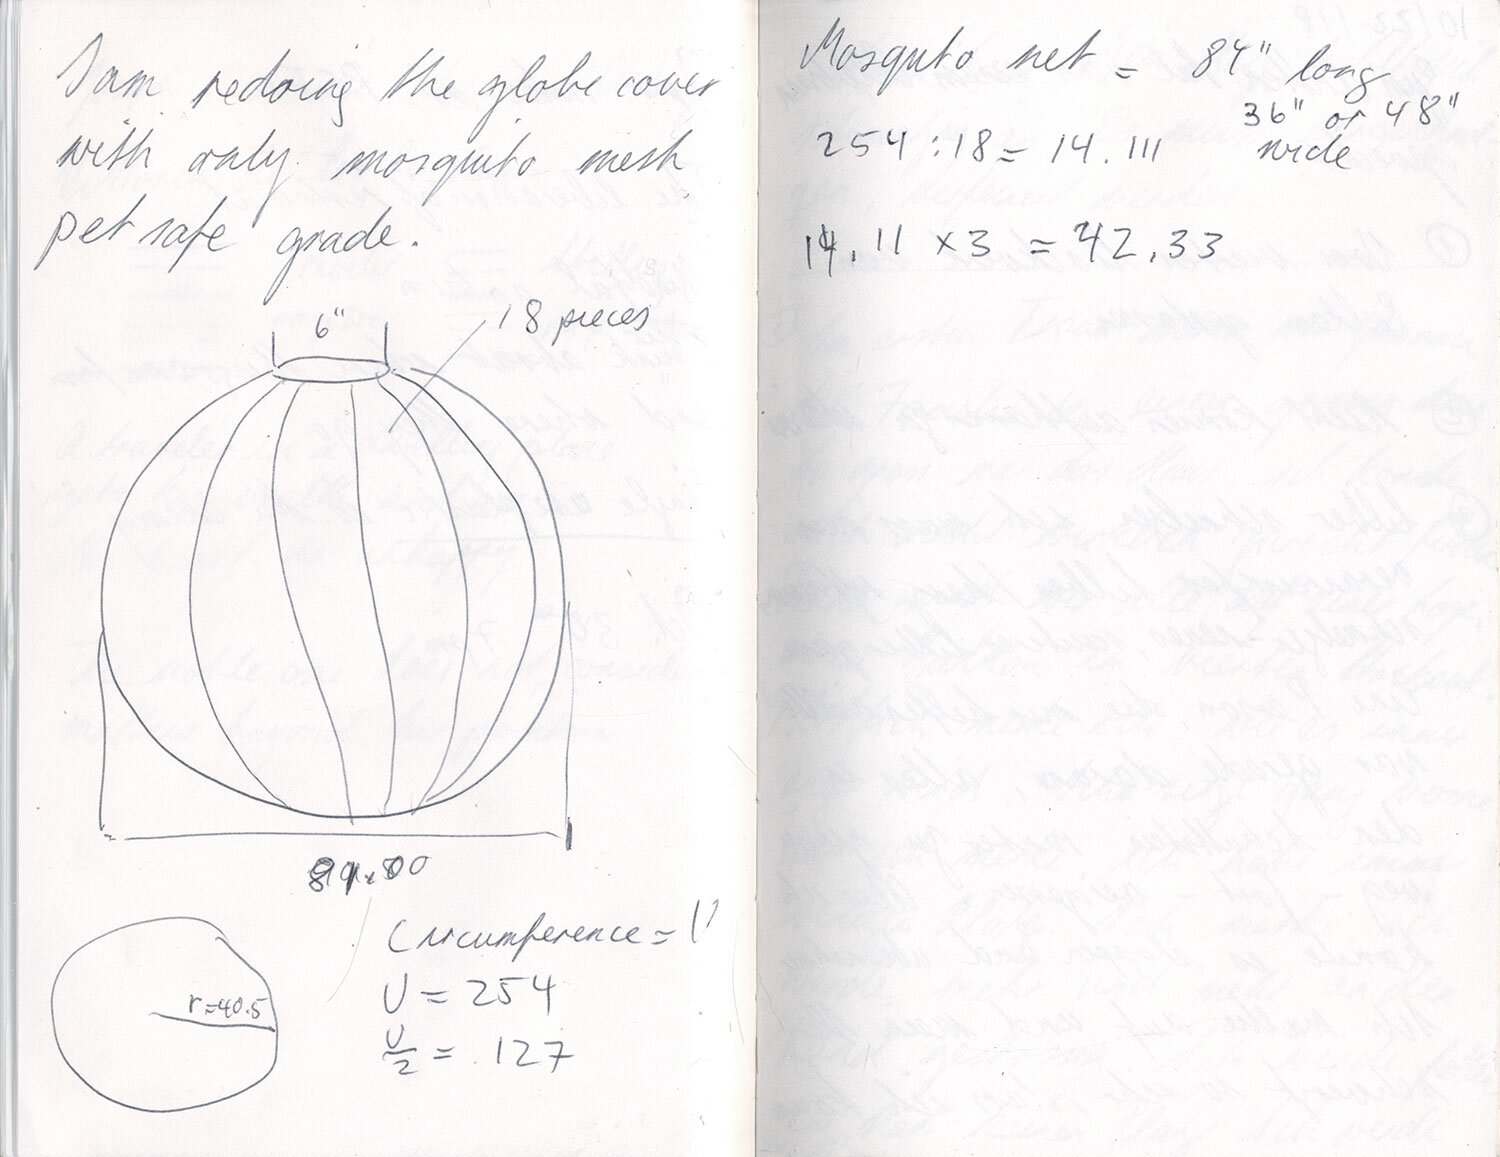 I am redoing the globe cover
with only mosquito mesh
pet safe grade.
6"
18 pieces
r=40.5
Circumference = U
U = 254
U/2 = 127
Mosquito net = 84" long
36" or 48"
wide
254 : 18 = 14.111
14.11 x 3 = 42.33